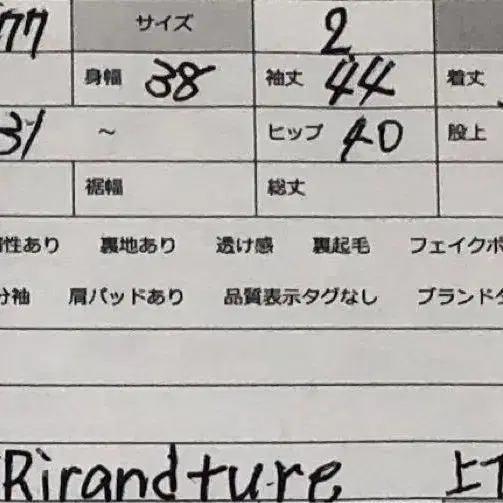 77 サイズ 2
身幅 38 袖丈 44 着丈
31 ~ ヒップ 40 股上
裾幅 総丈
性あり 裏地あり 透け感 裏起毛 フェイクポ
分袖 肩パッドあり 品質表示タグなし ブランドタ
Rirandture 上下